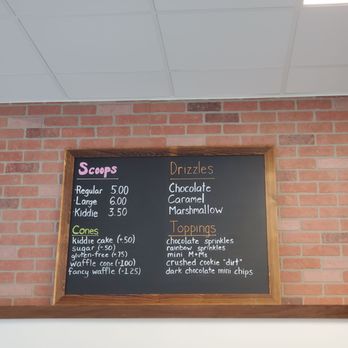 Scoops
Regular 5.00
Large 6.00
Kiddie 3.50
Cones
kiddie cake (+.50)
sugar (+.50)
gluten-free (+.75)
waffle cone (+1.00)
fancy waffle (+1.25)
Drizzles
Chocolate
Caramel
Marshmallow
Toppings
chocolate sprinkles
rainbow sprinkles
mini M+Ms
crushed cookie "dirt"
dark chocolate mini chips